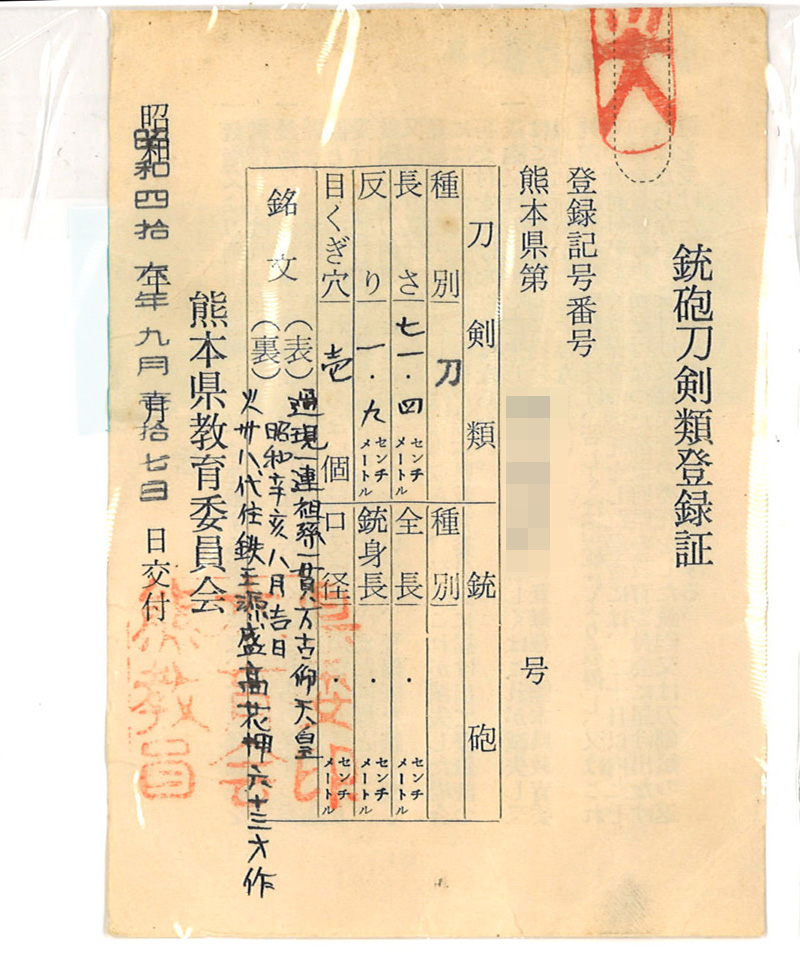 銃砲刀剣類登録証
登録記号番号
熊本県第 号
刀剣類
銃砲
種別 刀
種別
長さ 七一.四 センチメートル
全長 . センチメートル
反り 一.九 センチメートル
銃身長 . センチメートル
目くぎ穴 壱 個
口径 . センチメートル
銘文
(表) 過現一連祖孫一貫万古仰天皇
昭和辛亥八月吉日
(裏) 火卅八代住鉄王源盛高花押六十三才作
熊本県教育委員会
昭和四拾 年九月 拾七日 日交付
県教育委員会印